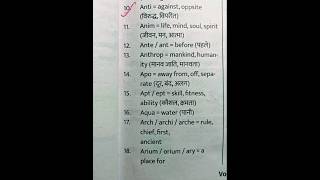 10. Anti = against, opposite
(विरुद्ध, विपरीत)
11. Anim = life, mind, soul, spirit
(जीवन, मन, आत्मा)
12. Ante / ant = before (पहले)
13. Anthrop = mankind, human-
ity (मानव जाति, मानवता)
14. Apo = away from, off, sepa-
rate (दूर, बंद, अलग)
15. Apt / ept = skill, fitness,
ability (कौशल, क्षमता)
16. Aqua = water (पानी)
17. Arch / archi / arche = rule,
chief, first,
ancient
18. Arium / orium / ary = a
place for
Vo